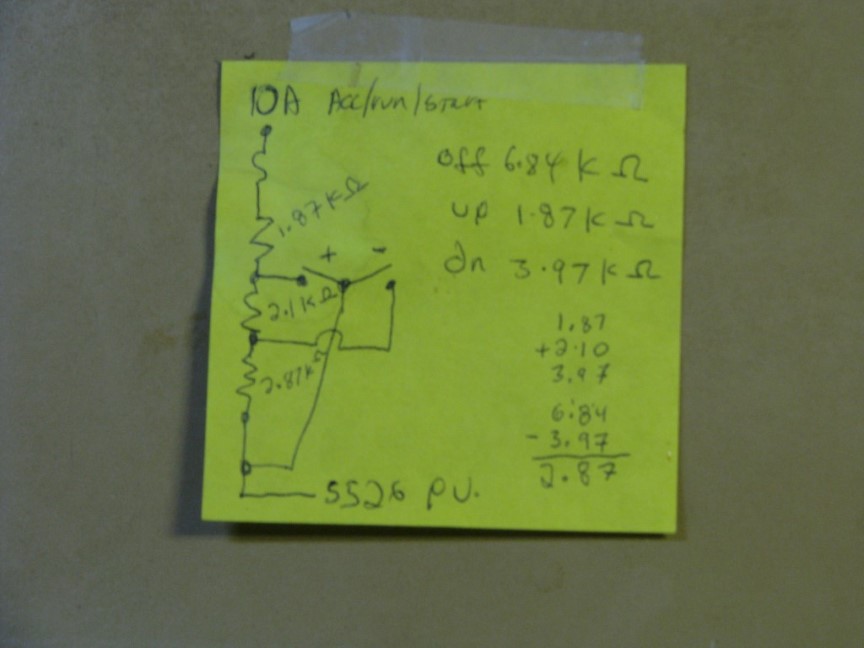 10A Acc/run/start
off 6.84 K Ω
up 1.87K Ω
dn 3.97K Ω
1.87KΩ
+ -
2.1KΩ
2.87KΩ
1.87
+2.10
3.97
6.84
- 3.97
2.87
5526 PU.